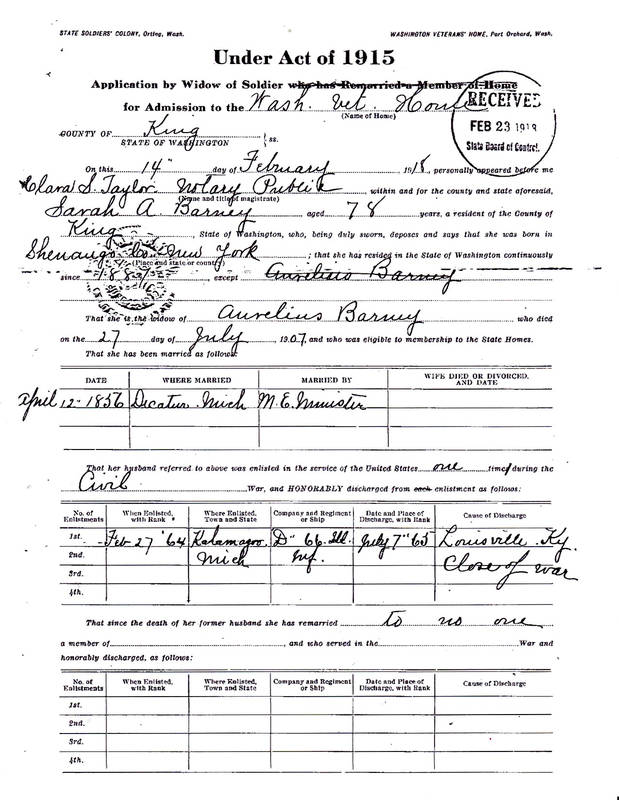 STATE SOLDIERS' COLONY, Orting, Wash. WASHINGTON VETERANS' HOME, Port Orchard, Wash.
Under Act of 1915
Application by Widow of Soldier who has Remarried a Member of Home
for Admission to the Wash. Vet. Home
(Name of Home)
RECEIVED
FEB 23 1918
State Board of Control.
COUNTY OF King
STATE OF WASHINGTON } ss.
On this 14" day of February 1918, personally appeared before me
Clara S. Taylor Notary Public within and for the county and state aforesaid,
(Name and title of magistrate)
Sarah A. Barney aged 78 years, a resident of the County of
King, State of Washington, who, being duly sworn, deposes and says that she was born in
Shenango Co. New York; that she has resided in the State of Washington continuously
(Place and state or country)
since 188 , except Aurelius Barney
That she is the widow of Aurelius Barney who died
on the 27 day of July, 1907, and who was eligible to membership to the State Homes.
That she has been married as follows:
DATE WHERE MARRIED MARRIED BY WIFE DIED OR DIVORCED, AND DATE
April 12-1856 Decatur Mich M.E. Minister
That her husband referred to above was enlisted in the service of the United States one times during the
Civil War, and HONORABLY discharged from each enlistment as follows:
No. of Enlistments When Enlisted, with Rank Where Enlisted, Town and State Company and Regiment or Ship Date and Place of Discharge, with Rank Cause of Discharge
1st. Feb-27 '64 Kalamazoo D" 66. Ill. July 7" 65 Louisville Ky.
2nd. Mich Inf. Close of war
3rd.
4th.
That since the death of her former husband she has remarried to no one
a member of , and who served in the War and
honorably discharged, as follows:
No. of Enlistments When Enlisted, with Rank Where Enlisted, Town and State Company and Regiment or Ship Date and Place of Discharge, with Rank Cause of Discharge
1st.
2nd.
3rd.
4th.